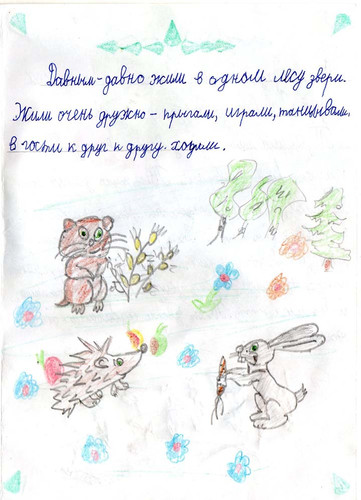 Давным-давно жили в одном лесу звери.
Жили очень дружно - прыгали, играли, танцывали,
в гости к друг к другу ходили.